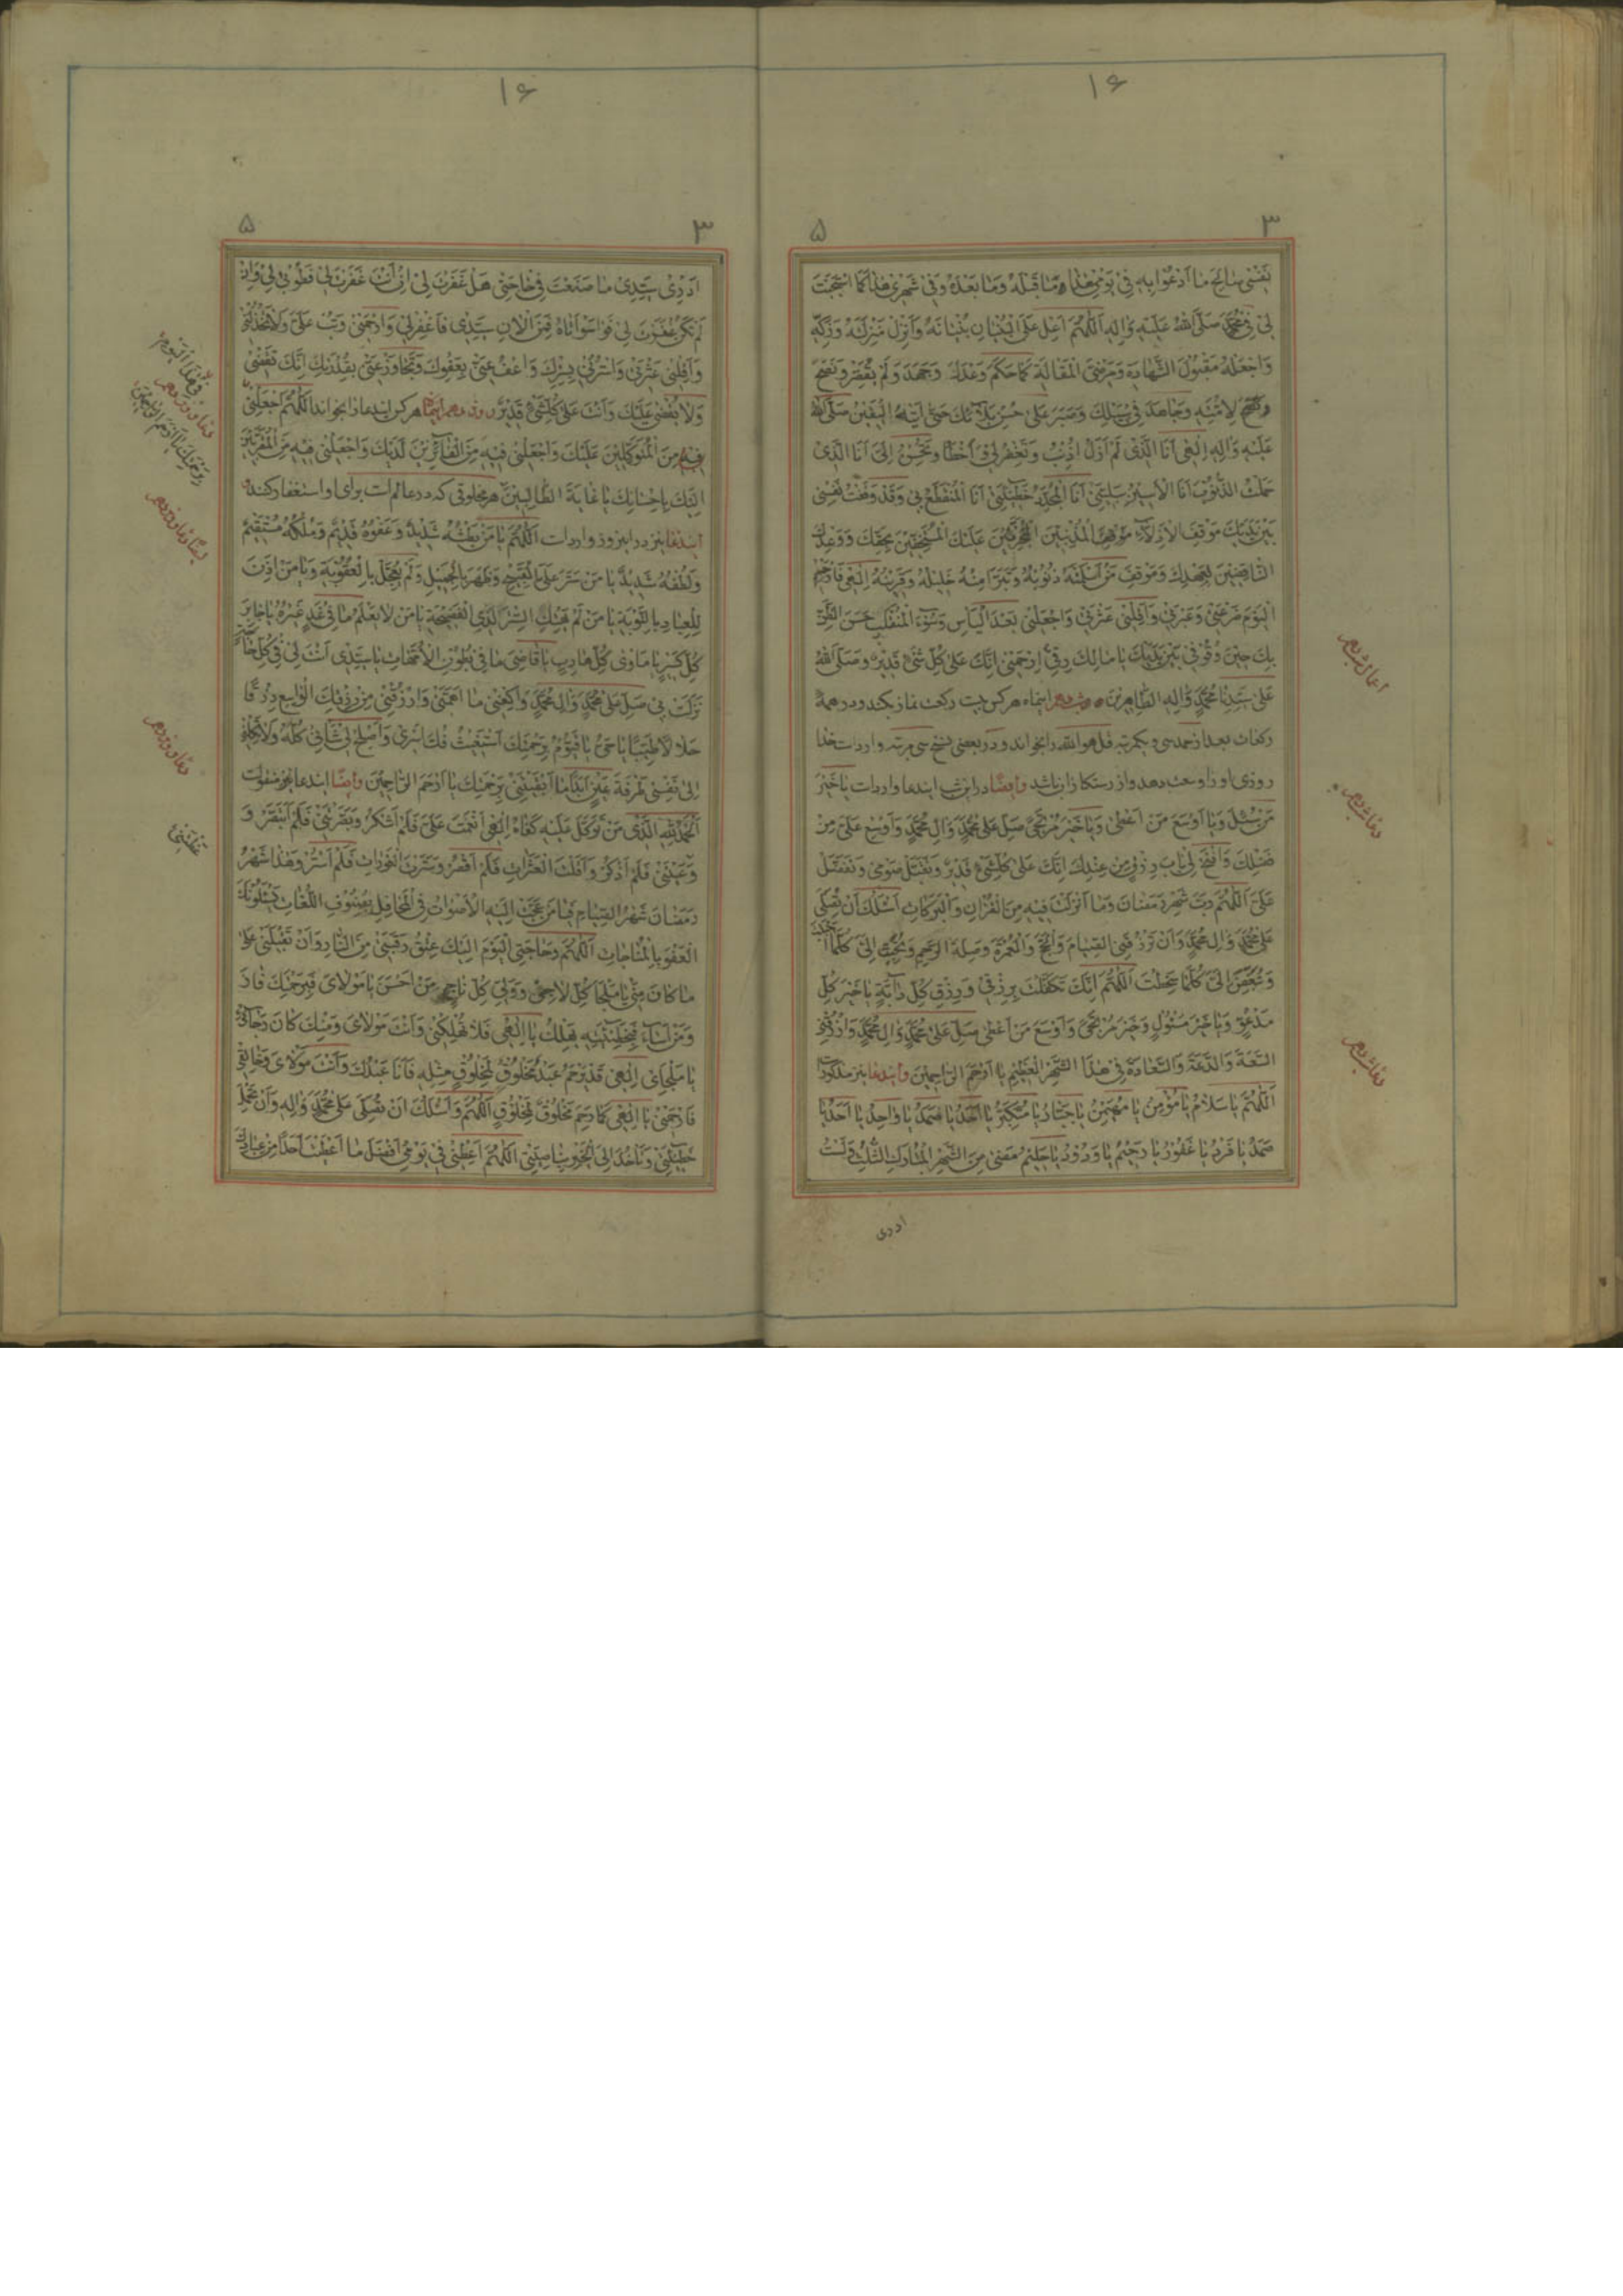 ۱۶
۳ ۵
نَفْسِی صَالِحَ مَا اَدْعُوا بِهِ فِی یَوْمِی هٰذَا وَمَا قَبْلَهُ وَمَا بَعْدَهُ وَفِی شَهْرِی هٰذَا کَمَا اسْتَجَبْتَ
لِی فِی مُحَمَّدٍ صَلَّی اللهُ عَلَیْهِ وَاٰلِهِ اَللّٰهُمَّ اَعْلِ عَلَی الْبُنْیَانِ بُنْیَانَهُ وَاَنْزِلْ مَنْزِلَهُ وَزَکِّهِ
وَاجْعَلْهُ مَقْبُولَ الشَّهَادَةِ وَمَرْضِیَّ الْمَقَالَةِ کَمَا حَکَمَ وَعَدَلَ وَجَهَدَ وَلَمْ یُقَصِّرْ وَنَصَحَ
لِاُمَّتِهِ وَجَاهَدَ فِی سَبِیلِکَ وَصَبَرَ عَلٰی حُسْنِ بَلَائِکَ حَتّٰی اَتَیٰهُ الْیَقِینُ صَلَّی اللهُ
عَلَیْهِ وَاٰلِهِ اِلٰهِی اَنَا الَّذِی لَمْ اَزَلْ اُذْنِبُ وَتَغْفِرُ لِی اَخْطَأُ وَتُحْسِنُ اِلَیَّ اَنَا الَّذِی
حَمَلْتُ الذُّنُوبَ اَنَا الْاَسِیرُ بِبَلِیَّتِی اَنَا خَطِیئَتِی اَنَا الْمُنْقَطَعُ بِی وَقَدْ وَقَفْتُ نَفْسِی
بَیْنَ یَدَیْکَ مَوْقِفَ الْاَذِلَّاءِ مَوْقِفَ الْمُذْنِبِینَ الْمُجْتَرِئِینَ عَلَیْکَ الْمُسْتَخِفِّینَ بِحَقِّکَ وَوَعْدِکَ
النَّاقِضِینَ لِعَهْدِکَ وَمَوْقِفَ مَنْ اَسْلَمَتْهُ ذُنُوبُهُ وَتَبَرَّأَ مِنْهُ خَلِیلُهُ وَقَرِینُهُ اِلٰهِی فَارْحَمِ
الْیَوْمَ وَعَبْرَتِی وَاَقِلْنِی عَثْرَتِی وَاجْعَلْنِی بَعْدَ الْیَأْسِ وَسُوءِ الْمُنْقَلَبِ حَسَنَ الظَّنِّ
بِکَ حِینَ وُقُوفِی بَیْنَ یَدَیْکَ یَا مَالِکَ رِقِّی اِرْحَمْنِی اِنَّکَ عَلٰی کُلِّ شَیْءٍ قَدِیرٌ وَصَلَّی اللهُ
عَلٰی سَیِّدِنَا مُحَمَّدٍ وَاٰلِهِ الطَّاهِرِینَ اینماه هر کس بیست رکعت نماز بکند و در همهٔ
رکعات بعد از حمد سی و یکمرتبه قل هو الله را بخواند و در بعضی نسخ سی مرتبه وارداست خدا
روزی او را وسعت بدهد و از رستکاران باشد وایضا در این شب ایندعا وارداست یَا خَیْرَ
مَنْ سُئِلَ وَیَا اَوْسَعَ مَنْ اَعْطٰی وَیَا خَیْرَ مُرْتَجٰی صَلِّ عَلٰی مُحَمَّدٍ وَاٰلِ مُحَمَّدٍ وَاَوْسِعْ عَلَیَّ مِنْ
فَضْلِکَ وَافْتَحْ لِی بَابَ رِزْقٍ مِنْ عِنْدِکَ اِنَّکَ عَلٰی کُلِّ شَیْءٍ قَدِیرٌ وَتَقَبَّلْ صَوْمِی وَتَفَضَّلْ
عَلَیَّ اَللّٰهُمَّ رَبَّ شَهْرِ رَمَضَانَ وَمَا اَنْزَلْتَ فِیهِ مِنَ الْقُرْاٰنِ وَالْبَرَکَاتِ اَسْئَلُکَ اَنْ تُصَلِّیَ
عَلٰی مُحَمَّدٍ وَاٰلِ مُحَمَّدٍ وَاَنْ تَرْزُقَنِی الصِّیَامَ وَالْحَجَّ وَالْعُمْرَةَ وَصِلَةَ الرَّحِمِ وَتُحَبِّبَ اِلَیَّ کُلَّمَا
وَتُبَغِّضَ اِلَیَّ کُلَّمَا سَخِطْتَ اَللّٰهُمَّ اِنَّکَ تَکَفَّلْتَ بِرِزْقِی وَرِزْقِ کُلِّ دَابَّةٍ یَا خَیْرَ کُلِّ
مَدْعُوٍّ وَیَا خَیْرَ مَسْئُولٍ وَخَیْرَ مُرْتَجٰی وَاَوْسَعَ مَنْ اَعْطٰی صَلِّ عَلٰی مُحَمَّدٍ وَاٰلِ مُحَمَّدٍ وَارْزُقْنِی
السَّعَةَ وَالدَّعَةَ وَالسَّعَادَةَ فِی هٰذَا الشَّهْرِ الْعَظِیمِ یَا اَرْحَمَ الرَّاحِمِینَ وایندعا نیز مذکور است
اَللّٰهُمَّ یَا سَلَامُ یَا مُؤْمِنُ یَا مُهَیْمِنُ یَا جَبَّارُ یَا مُتَکَبِّرُ یَا اَحَدُ یَا صَمَدُ یَا وَاحِدُ یَا اَحَدُ یَا
صَمَدُ یَا فَرْدُ یَا غَفُورُ یَا رَحِیمُ یَا وَدُودُ یَا حَلِیمُ مَضٰی مِنَ الشَّهْرِ الْمُبَارَکِ الثُّلُثُ وَلَسْتُ
ادری
اعمال شب دهم
دعای شب دهم
دعای شب دهم
۱۶
۳ ۵
اَدْرِی سَیِّدِی مَا صَنَعْتَ فِی حَاجَتِی هَلْ غَفَرْتَ لِی اِنْ اَنْتَ غَفَرْتَ لِی فَطُوبٰی لِی وَاِنْ
لَمْ تَکُنْ غَفَرْتَ لِی فَوَاسَوْاَتَاهُ فَمِنَ الْاٰنِ سَیِّدِی فَاغْفِرْ لِی وَارْحَمْنِی وَتُبْ عَلَیَّ وَلَا تَخْذُلْنِی
وَاَقِلْنِی عَثْرَتِی وَاسْتُرْنِی بِسِتْرِکَ وَاعْفُ عَنِّی بِعَفْوِکَ وَتَجَاوَزْ عَنِّی بِقُدْرَتِکَ اِنَّکَ تَقْضِی
وَلَا یُقْضٰی عَلَیْکَ وَاَنْتَ عَلٰی کُلِّ شَیْءٍ قَدِیرٌ روز دهم اینماه هر کس ایندعا را بخواند اَللّٰهُمَّ اجْعَلْنِی
فِیهِ مِنَ الْمُتَوَکِّلِینَ عَلَیْکَ وَاجْعَلْنِی فِیهِ مِنَ الْفَائِزِینَ لَدَیْکَ وَاجْعَلْنِی فِیهِ مِنَ الْمُقَرَّبِینَ
اِلَیْکَ بِاِحْسَانِکَ یَا غَایَةَ الطَّالِبِینَ هر مخلوقی که در عالم است برای او استغفار کند و
ایندعا نیز در اینروز وارداست اَللّٰهُمَّ یَا مَنْ بَطْشُهُ شَدِیدٌ وَعَفْوُهُ قَدِیمٌ وَمُلْکُهُ مُسْتَقِیمٌ
وَلُطْفُهُ شَدِیدٌ یَا مَنْ سَتَرَ عَلَیَّ الْقَبِیحَ وَظَهَرَ بِالْجَمِیلِ وَلَمْ یُعَجِّلْ بِالْعُقُوبَةِ وَیَا مَنْ اَذِنَ
لِلْعِبَادِ بِالتَّوْبَةِ یَا مَنْ لَمْ یَهْتِکِ السِّتْرَ لَدَی الْفَضِیحَةِ یَا مَنْ لَا یَعْلَمُ مَا فِی غَدٍ غَیْرُهُ یَا جَابِرَ
کُلِّ کَسِیرٍ یَا مَاْوٰی کُلِّ هَارِبٍ یَا غَاذِیَ مَا فِی بُطُونِ الْاُمَّهَاتِ یَا سَیِّدِی اَنْتَ لِی فِی کُلِّ حَاجَةٍ
نَزَلَتْ بِی صَلِّ عَلٰی مُحَمَّدٍ وَاٰلِ مُحَمَّدٍ وَاکْفِنِی مَا اَهَمَّنِی وَارْزُقْنِی مِنْ رِزْقِکَ الْوَاسِعِ رِزْقًا
حَلَالًا طَیِّبًا یَا حَیُّ یَا قَیُّومُ بِرَحْمَتِکَ اَسْتَغِیثُ فُکَّ اَسْرِی وَاَصْلِحْ لِی شَأْنِی کُلَّهُ وَلَا تَکِلْنِی
اِلٰی نَفْسِی طَرْفَةَ عَیْنٍ اَبَدًا مَا اَبْقَیْتَنِی بِرَحْمَتِکَ یَا اَرْحَمَ الرَّاحِمِینَ وایضا ایندعا نیز منقول است
اَلْحَمْدُ لِلّٰهِ الَّذِی مَنْ تَوَکَّلَ عَلَیْهِ کَفَاهُ اِلٰهِی اَنْعَمْتَ عَلَیَّ فَلَمْ اَشْکُرْ وَبَصَّرْتَنِی فَلَمْ اُبْصِرْ وَ
وَعَظْتَنِی فَلَمْ اَذْکُرْ وَاَقَلْتَ الْعَثَرَاتِ فَلَمْ اُقْصِرْ وَسَتَرْتَ الْعَوْرَاتِ فَلَمْ اَسْتَتِرْ وَهٰذَا شَهْرُ
رَمَضَانَ شَهْرُ الصِّیَامِ فَیَا مَنْ عَجَّتْ اِلَیْهِ الْاَصْوَاتُ فِی الْمَحَافِلِ بِصُنُوفِ اللُّغَاتِ یَسْئَلُونَکَ
الْعَفْوَ بِالْمُنَاجَاتِ اَللّٰهُمَّ وَحَاجَتِی الْیَوْمَ اِلَیْکَ عِتْقُ رَقَبَتِی مِنَ النَّارِ وَاَنْ تُقْبِلَنِی عَلٰی
مَا کَانَ مِنِّی یَا مَلْجَأَ کُلِّ لَاجِئٍ وَوَلِیَّ کُلِّ نَاجٍ مَنْ اَحْسَنَ یَا مَوْلَایَ فَبِرَحْمَتِکَ فَازَ
وَمَنْ اَسَاءَ فَبِخَطِیئَتِهِ یَهْلِکُ یَا اِلٰهِی فَلَا تُهْلِکْنِی وَاَنْتَ مَوْلَایَ وَمِنْکَ کَانَ رَجَائِی
یَا مَلْجَایَ اِلٰهِی قَدْ یَرْحَمُ عَبْدٌ مَخْلُوقٌ لِمَخْلُوقٍ مِثْلِهِ فَاَنَا عَبْدُکَ وَاَنْتَ مَوْلَایَ وَخَالِقِی
فَارْحَمْنِی یَا اِلٰهِی کَمَا رَحِمَ مَخْلُوقٌ لِمَخْلُوقٍ اَللّٰهُمَّ وَاَسْئَلُکَ اَنْ تُصَلِّیَ عَلٰی مُحَمَّدٍ وَاٰلِهِ وَاَنْ تَحْمِلَ
خَطِیئَتِی وَتَأْخُذَ اِلَی الْخَیْرِ بِنَاصِیَتِی اَللّٰهُمَّ اَعْطِنِی فِی یَوْمِی اَفْضَلَ مَا اَعْطَیْتَ اَحَدًا مِنْ عِبَادِکَ
دعای روز دهم
ایضا دعای روز دهم
دعای روز دهم